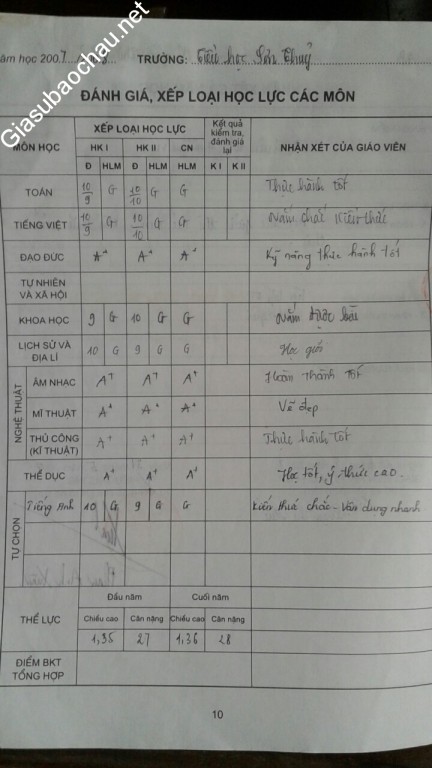 Năm học 2007 TRƯỜNG: Tiểu học Sơn Thuỷ
Giasubaochau.net
ĐÁNH GIÁ, XẾP LOẠI HỌC LỰC CÁC MÔN
MÔN HỌC XẾP LOẠI HỌC LỰC Kết quả kiểm tra, đánh giá lại NHẬN XÉT CỦA GIÁO VIÊN
HK I HK II CN
Đ HLM Đ HLM HLM K I K II
TOÁN 10/9 G 10/10 G G Thực hành tốt
TIẾNG VIỆT 10/9 G 10/10 G G Nắm chắc kiến thức
ĐẠO ĐỨC A+ A+ A+ Kỹ năng thực hành tốt
TỰ NHIÊN VÀ XÃ HỘI
KHOA HỌC 9 G 10 G G Nắm được bài
LỊCH SỬ VÀ ĐỊA LÍ 10 G 9 G G Học giỏi
NGHỆ THUẬT
ÂM NHẠC A+ A+ A+ Hoàn thành tốt
MĨ THUẬT A+ A+ A+ Vẽ đẹp
THỦ CÔNG (KĨ THUẬT) A+ A+ A+ Thực hành tốt
THỂ DỤC A+ A+ A+ Học tốt, ý thức cao.
TỰ CHỌN
Tiếng Anh 10 G 9 G G Kiến thức chắc - Vận dụng nhanh
THỂ LỰC Đầu năm Cuối năm
Chiều cao Cân nặng Chiều cao Cân nặng
1,35 27 1,36 28
ĐIỂM BKT TỔNG HỢP
10